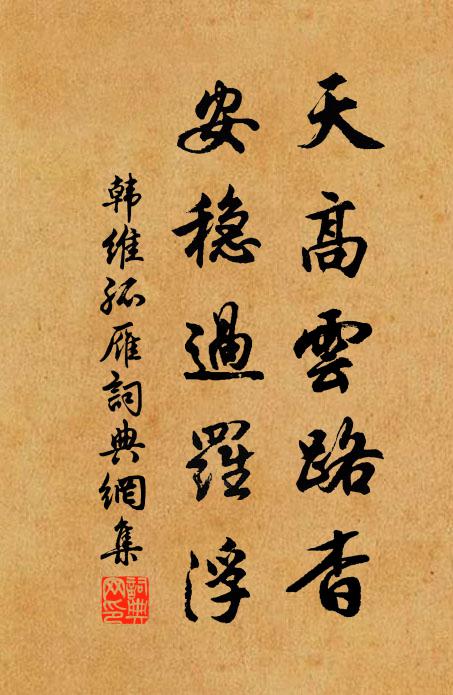 天高雲路杳
安稳過羅浮
韩維孤雁詞典網集
詞典网印